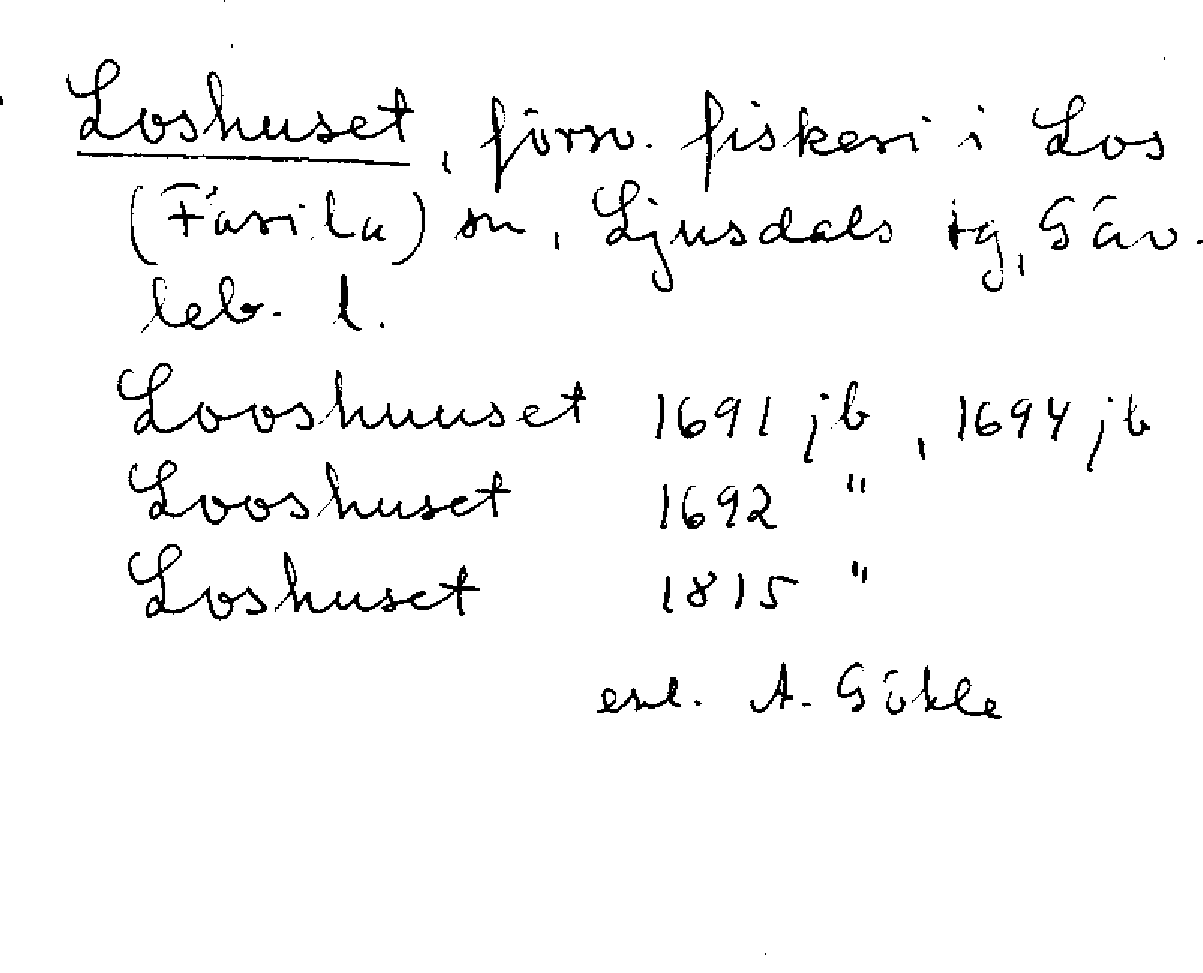 Loshuset, försv. fiskeri i Los
(Färila) sn, Ljusdals tg, Gäv-
leb. l.
Looshuuset 1691 jb, 1694 jb
Looshuset 1692 "
Loshuset 1815 "
enl. A. Gökle